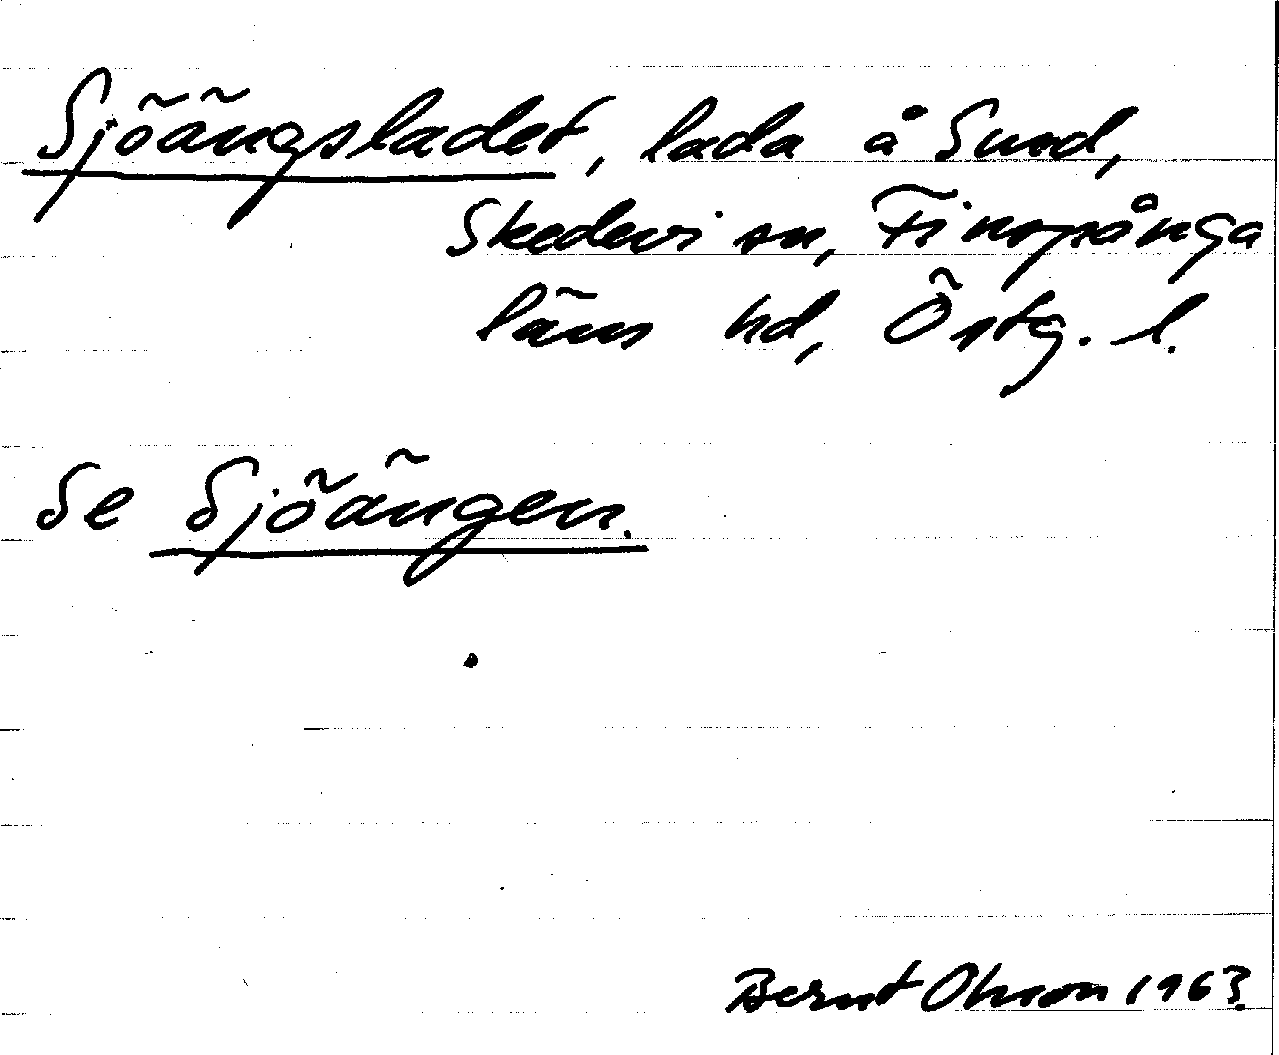 Sjöängsladet, lada å Sund,
Skedevi sn, Finspånga
läns hd, Östg. l.
Se Sjöängen.
Bernt Olsson 1963.